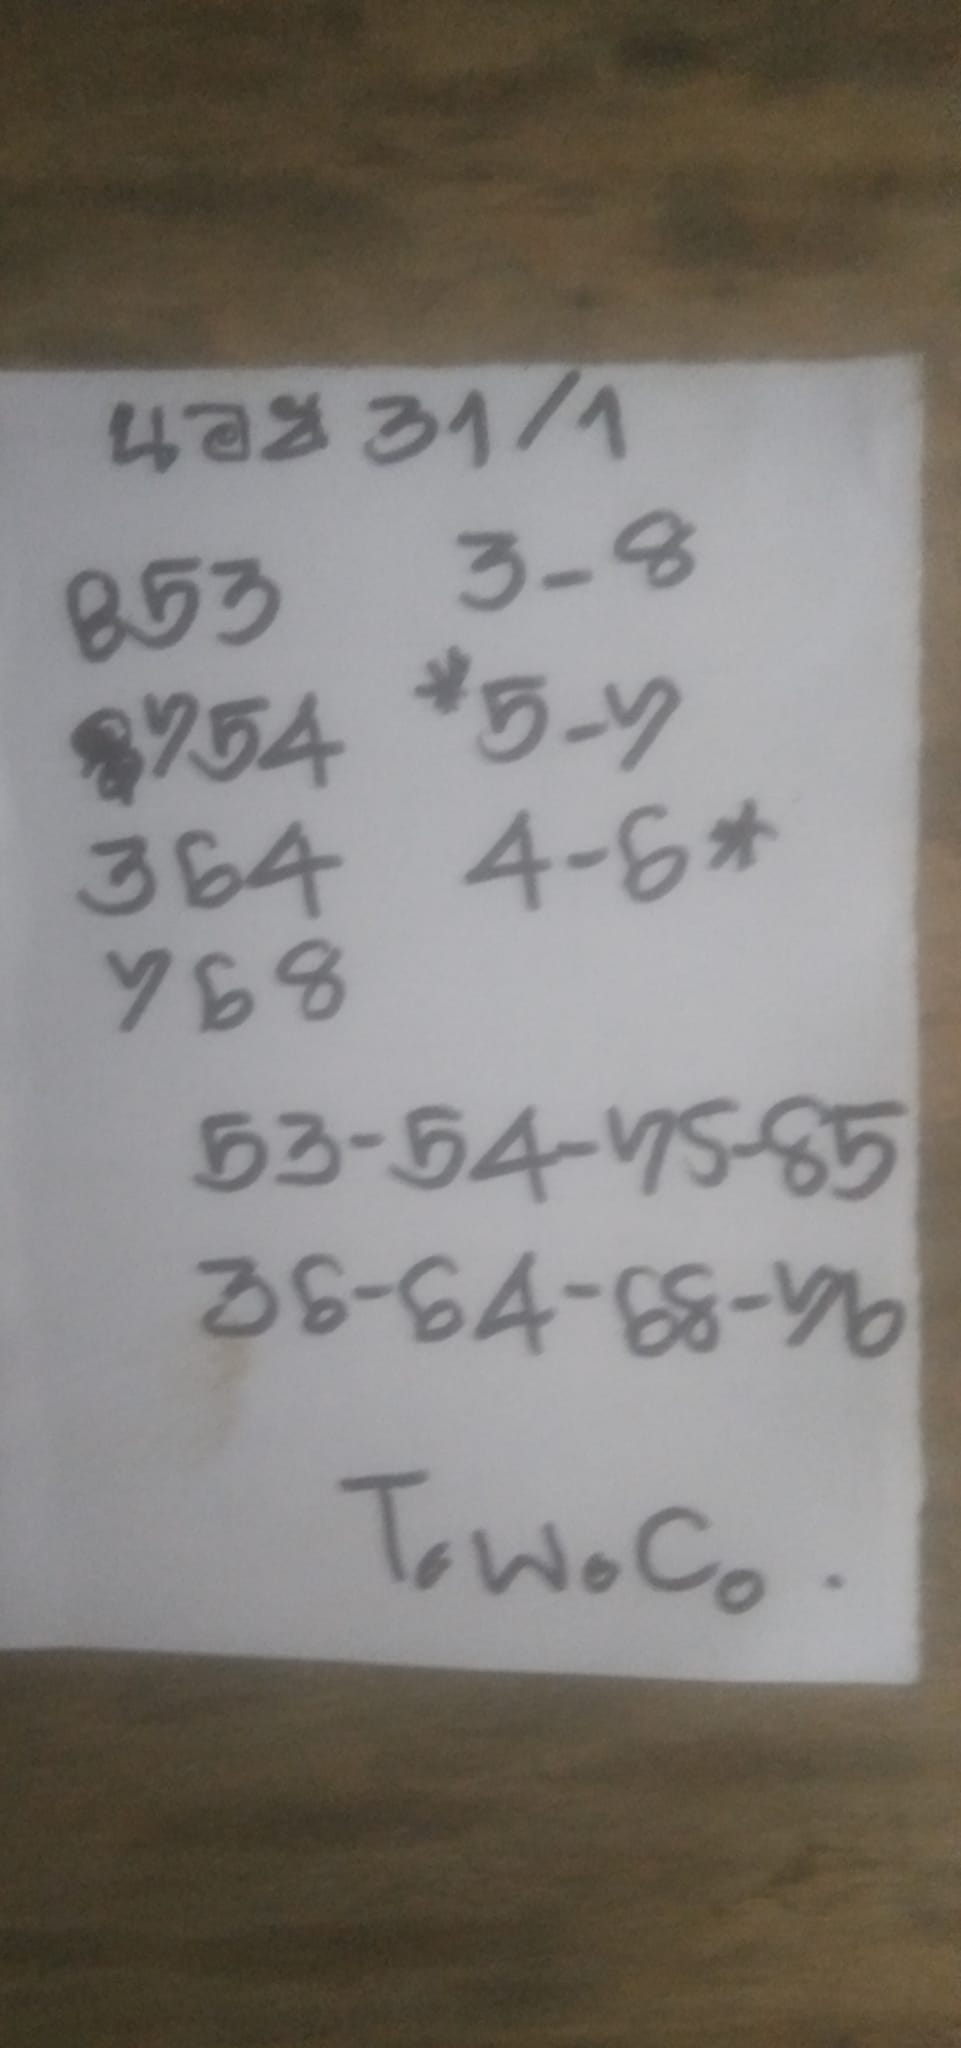 นอย 31/1
853 3-8
754 *5-7
364 4-6*
768
53-54-75-85
36-64-68-76
T.W.Co.